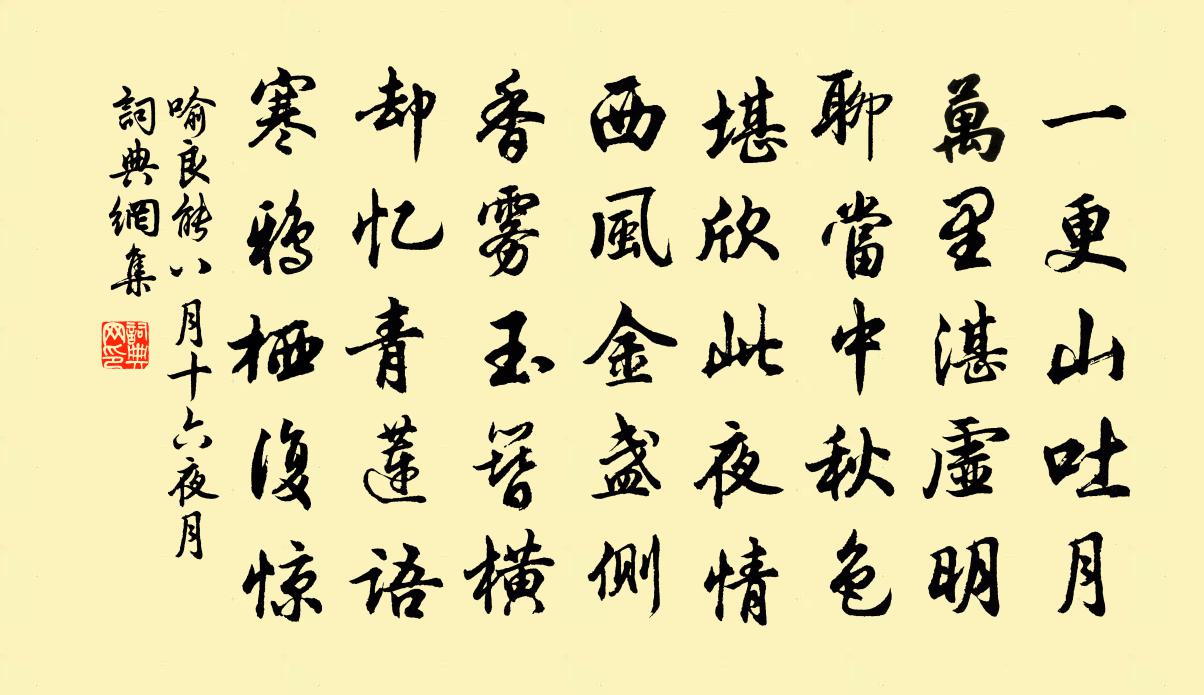 一更山吐月
萬里湛虛明
聊當中秋色
堪欣此夜情
西風金盞側
香雾玉簪橫
却忆青蓮語
寒鴉栖復惊
喻良能八月十六夜月
詞典網集
詞典
网印